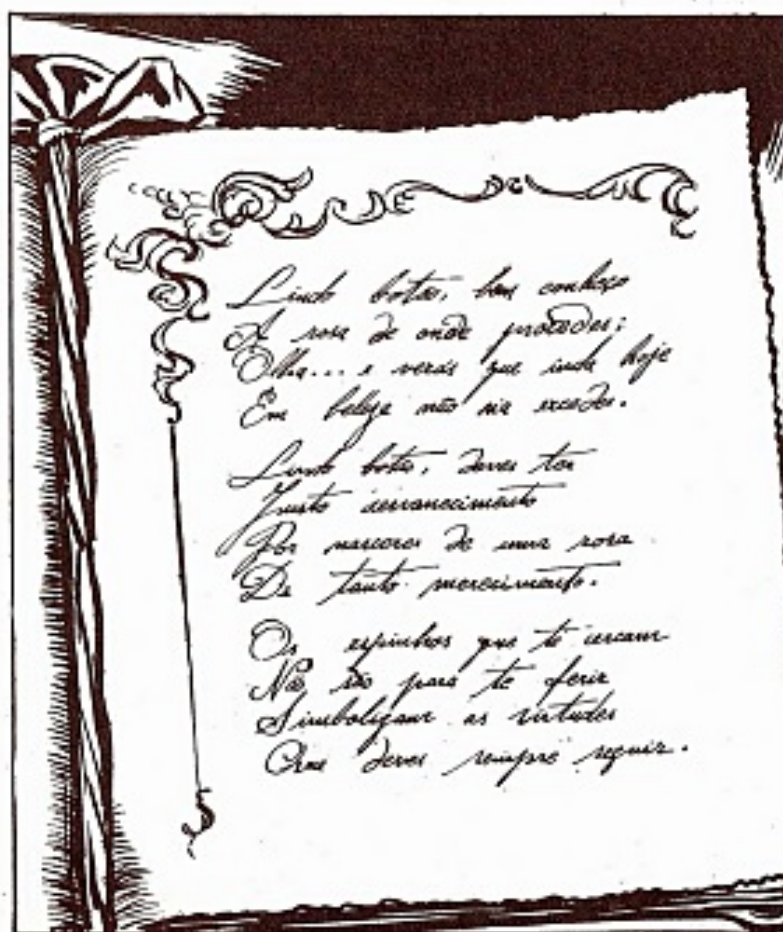 Lindo botão, bem conheço
A rosa de onde procedes;
Olha... e verás que inda hoje
Em beleza não na excedes.
Lindo botão, deves ter
Justo desvanecimento
Por nasceres de uma rosa
De tanto merecimento.
Os espinhos que te cercam
Não são para te ferir
Simbolizam as virtudes
Que deves sempre seguir.